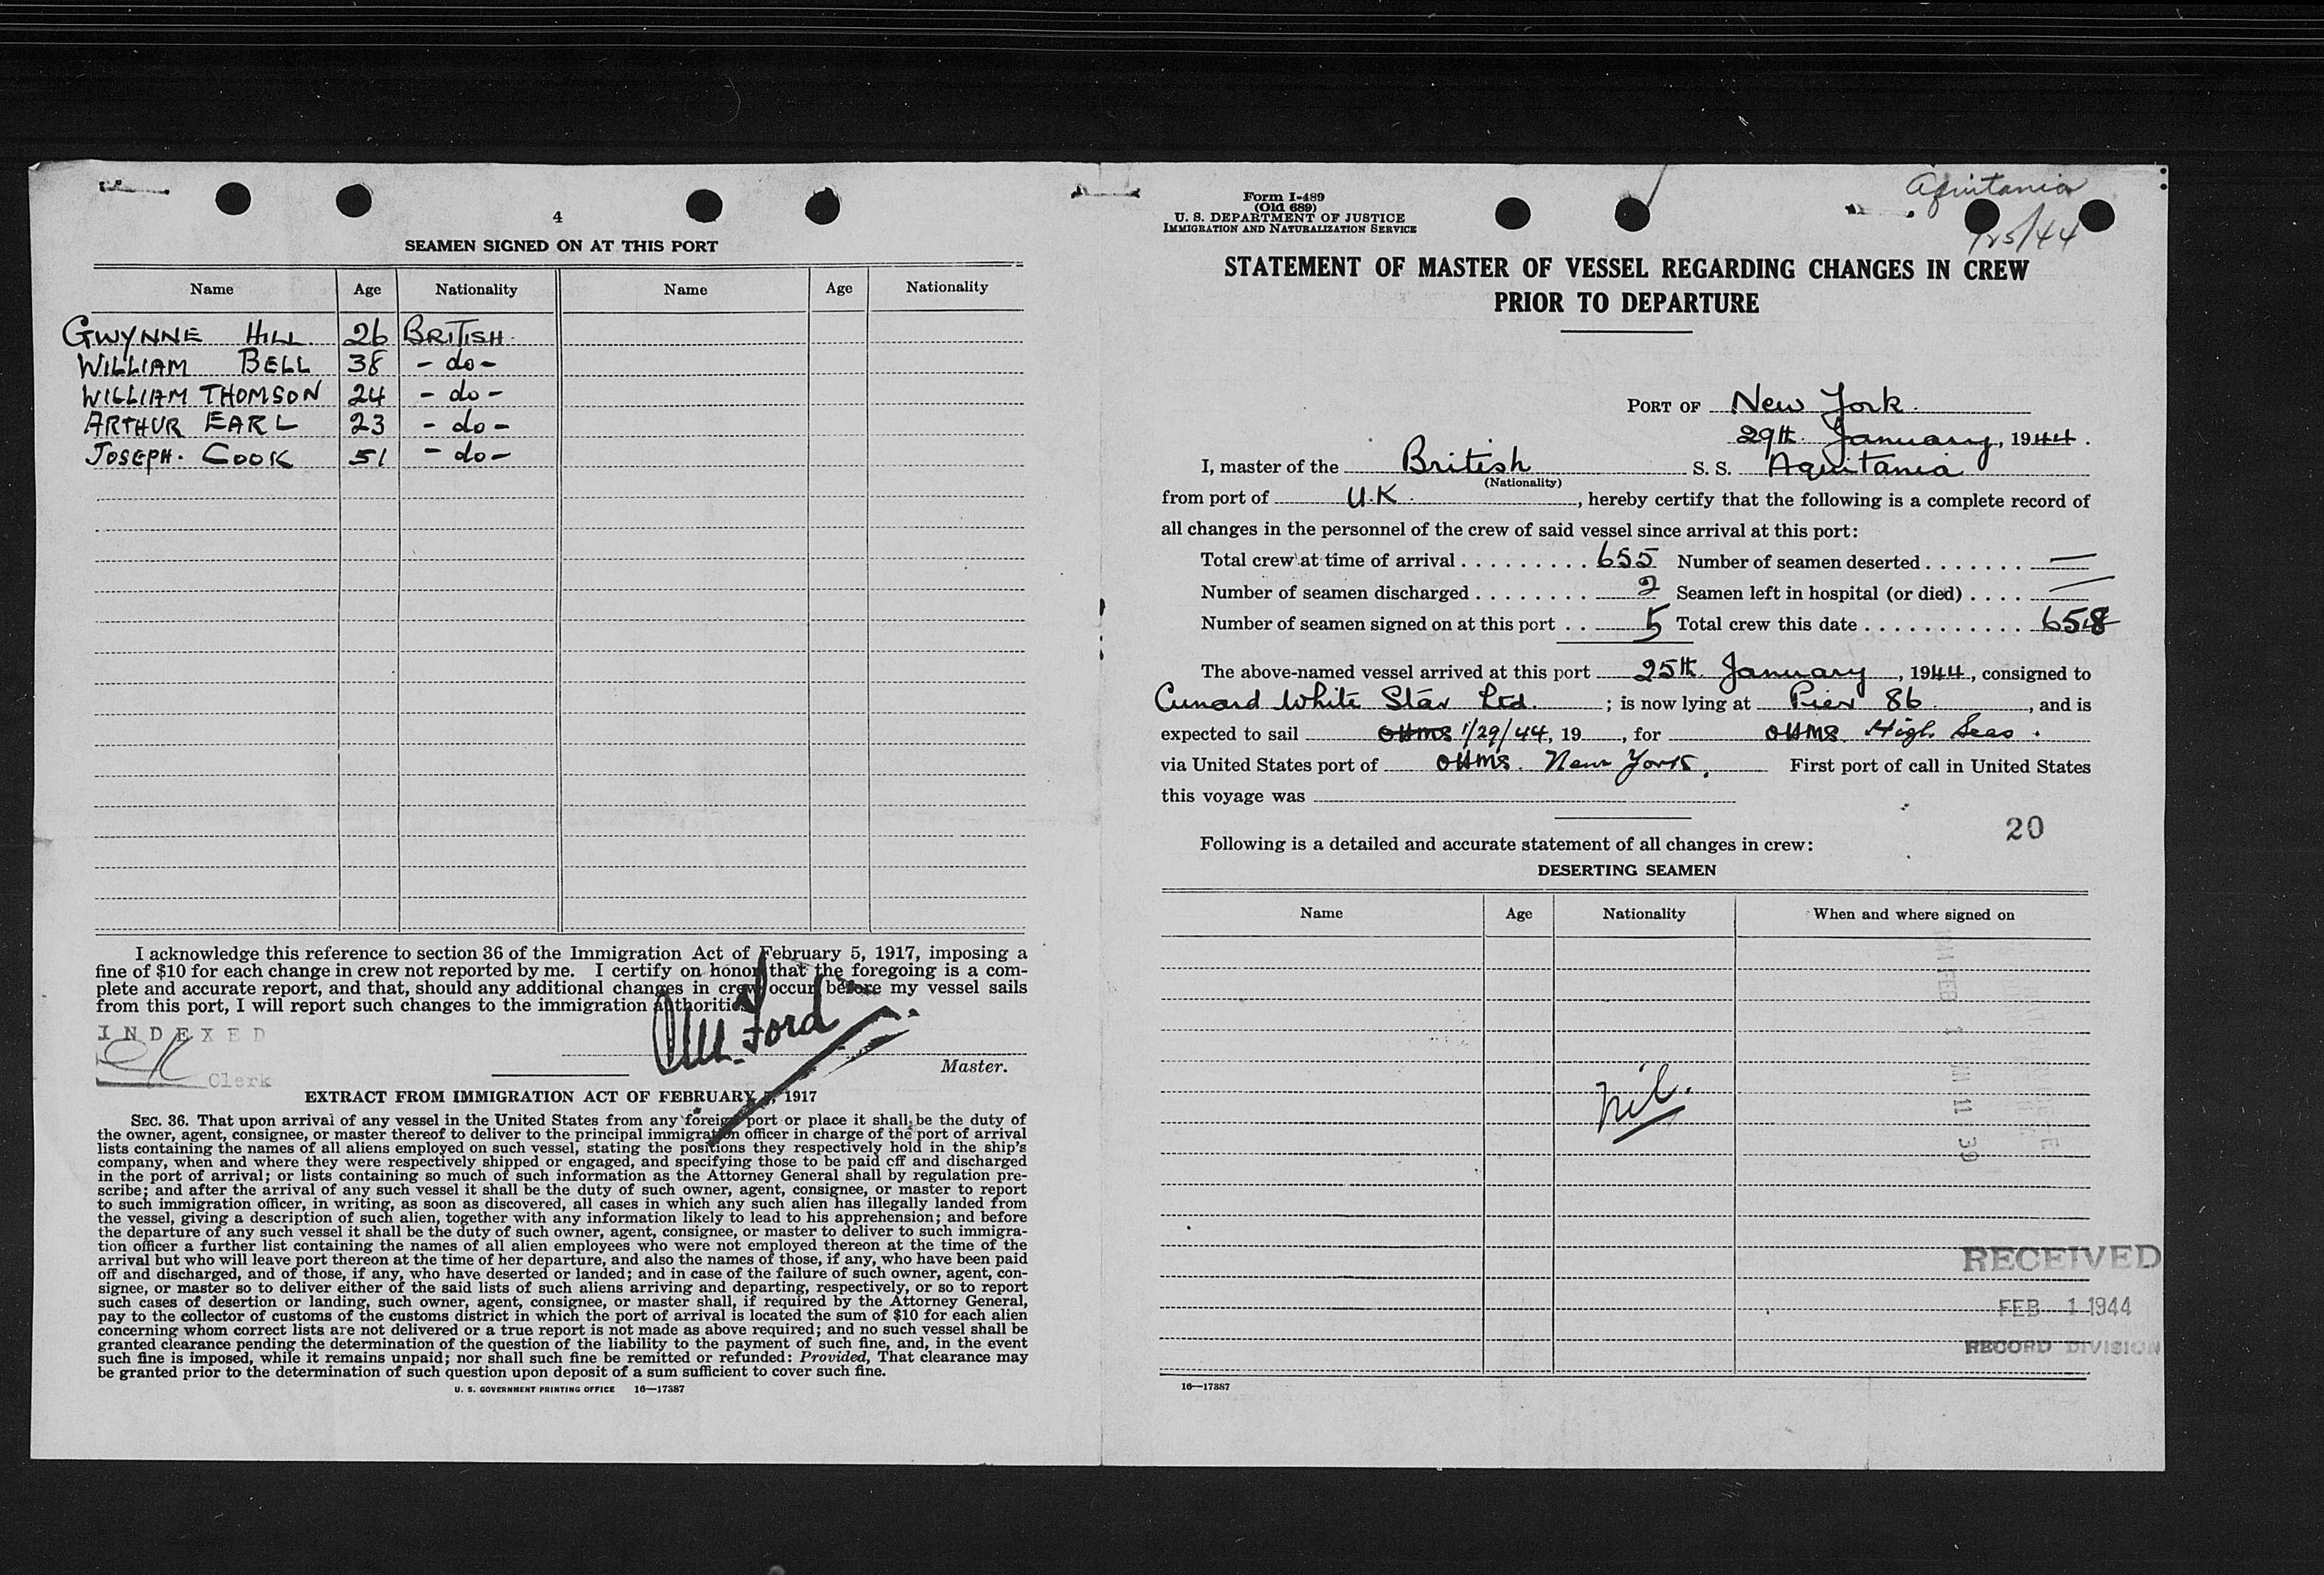 4
SEAMEN SIGNED ON AT THIS PORT
Name Age Nationality Name Age Nationality
GWYNNE HILL. 26 BRITISH
WILLIAM BELL 38 - do -
WILLIAM THOMSON 24 - do -
ARTHUR EARL 23 - do -
JOSEPH. COOK 51 - do -
I acknowledge this reference to section 36 of the Immigration Act of February 5, 1917, imposing a
fine of $10 for each change in crew not reported by me. I certify on honor that the foregoing is a com-
plete and accurate report, and that, should any additional changes in crew occur before my vessel sails
from this port, I will report such changes to the immigration authorities.
INDEXED
Ford
Master.
Clerk
EXTRACT FROM IMMIGRATION ACT OF FEBRUARY 5, 1917
SEC. 36. That upon arrival of any vessel in the United States from any foreign port or place it shall be the duty of
the owner, agent, consignee, or master thereof to deliver to the principal immigration officer in charge of the port of arrival
lists containing the names of all aliens employed on such vessel, stating the positions they respectively hold in the ship's
company, when and where they were respectively shipped or engaged, and specifying those to be paid off and discharged
in the port of arrival; or lists containing so much of such information as the Attorney General shall by regulation pre-
scribe; and after the arrival of any such vessel it shall be the duty of such owner, agent, consignee, or master to report
to such immigration officer, in writing, as soon as discovered, all cases in which any such alien has illegally landed from
the vessel, giving a description of such alien, together with any information likely to lead to his apprehension; and before
the departure of any such vessel it shall be the duty of such owner, agent, consignee, or master to deliver to such immigra-
tion officer a further list containing the names of all alien employees who were not employed thereon at the time of the
arrival but who will leave port thereon at the time of her departure, and also the names of those, if any, who have been paid
off and discharged, and of those, if any, who have deserted or landed; and in case of the failure of such owner, agent, con-
signee, or master so to deliver either of the said lists of such aliens arriving and departing, respectively, or so to report
such cases of desertion or landing, such owner, agent, consignee, or master shall, if required by the Attorney General,
pay to the collector of customs of the customs district in which the port of arrival is located the sum of $10 for each alien
concerning whom correct lists are not delivered or a true report is not made as above required; and no such vessel shall be
granted clearance pending the determination of the question of the liability to the payment of such fine, and, in the event
such fine is imposed, while it remains unpaid; nor shall such fine be remitted or refunded: Provided, That clearance may
be granted prior to the determination of such question upon deposit of a sum sufficient to cover such fine.
U. S. GOVERNMENT PRINTING OFFICE 16—17387
Aquitania
1/25/44
Form I-489
(Old 689)
U. S. DEPARTMENT OF JUSTICE
IMMIGRATION AND NATURALIZATION SERVICE
STATEMENT OF MASTER OF VESSEL REGARDING CHANGES IN CREW
PRIOR TO DEPARTURE
PORT OF New York.
29th. January, 1944.
I, master of the British S. S. Aquitania
(Nationality)
from port of U.K., hereby certify that the following is a complete record of
all changes in the personnel of the crew of said vessel since arrival at this port:
Total crew at time of arrival . . . . . . . . . 655 Number of seamen deserted . . . . . . . —
Number of seamen discharged . . . . . . . . 2 Seamen left in hospital (or died) . . . . —
Number of seamen signed on at this port . . 5 Total crew this date . . . . . . . . . . . . 658
The above-named vessel arrived at this port 25th. January, 1944, consigned to
Cunard White Star Ltd. ; is now lying at Pier 86., and is
expected to sail OHMS 1/29/44, 19 , for OHMS. High Seas.
via United States port of OHMS. New York. First port of call in United States
this voyage was
20
Following is a detailed and accurate statement of all changes in crew:
DESERTING SEAMEN
Name Age Nationality When and where signed on
nil.
1944 FEB 1 AM 11 39
RECEIVED
FEB 1 1944
RECORD DIVISION
16—17387